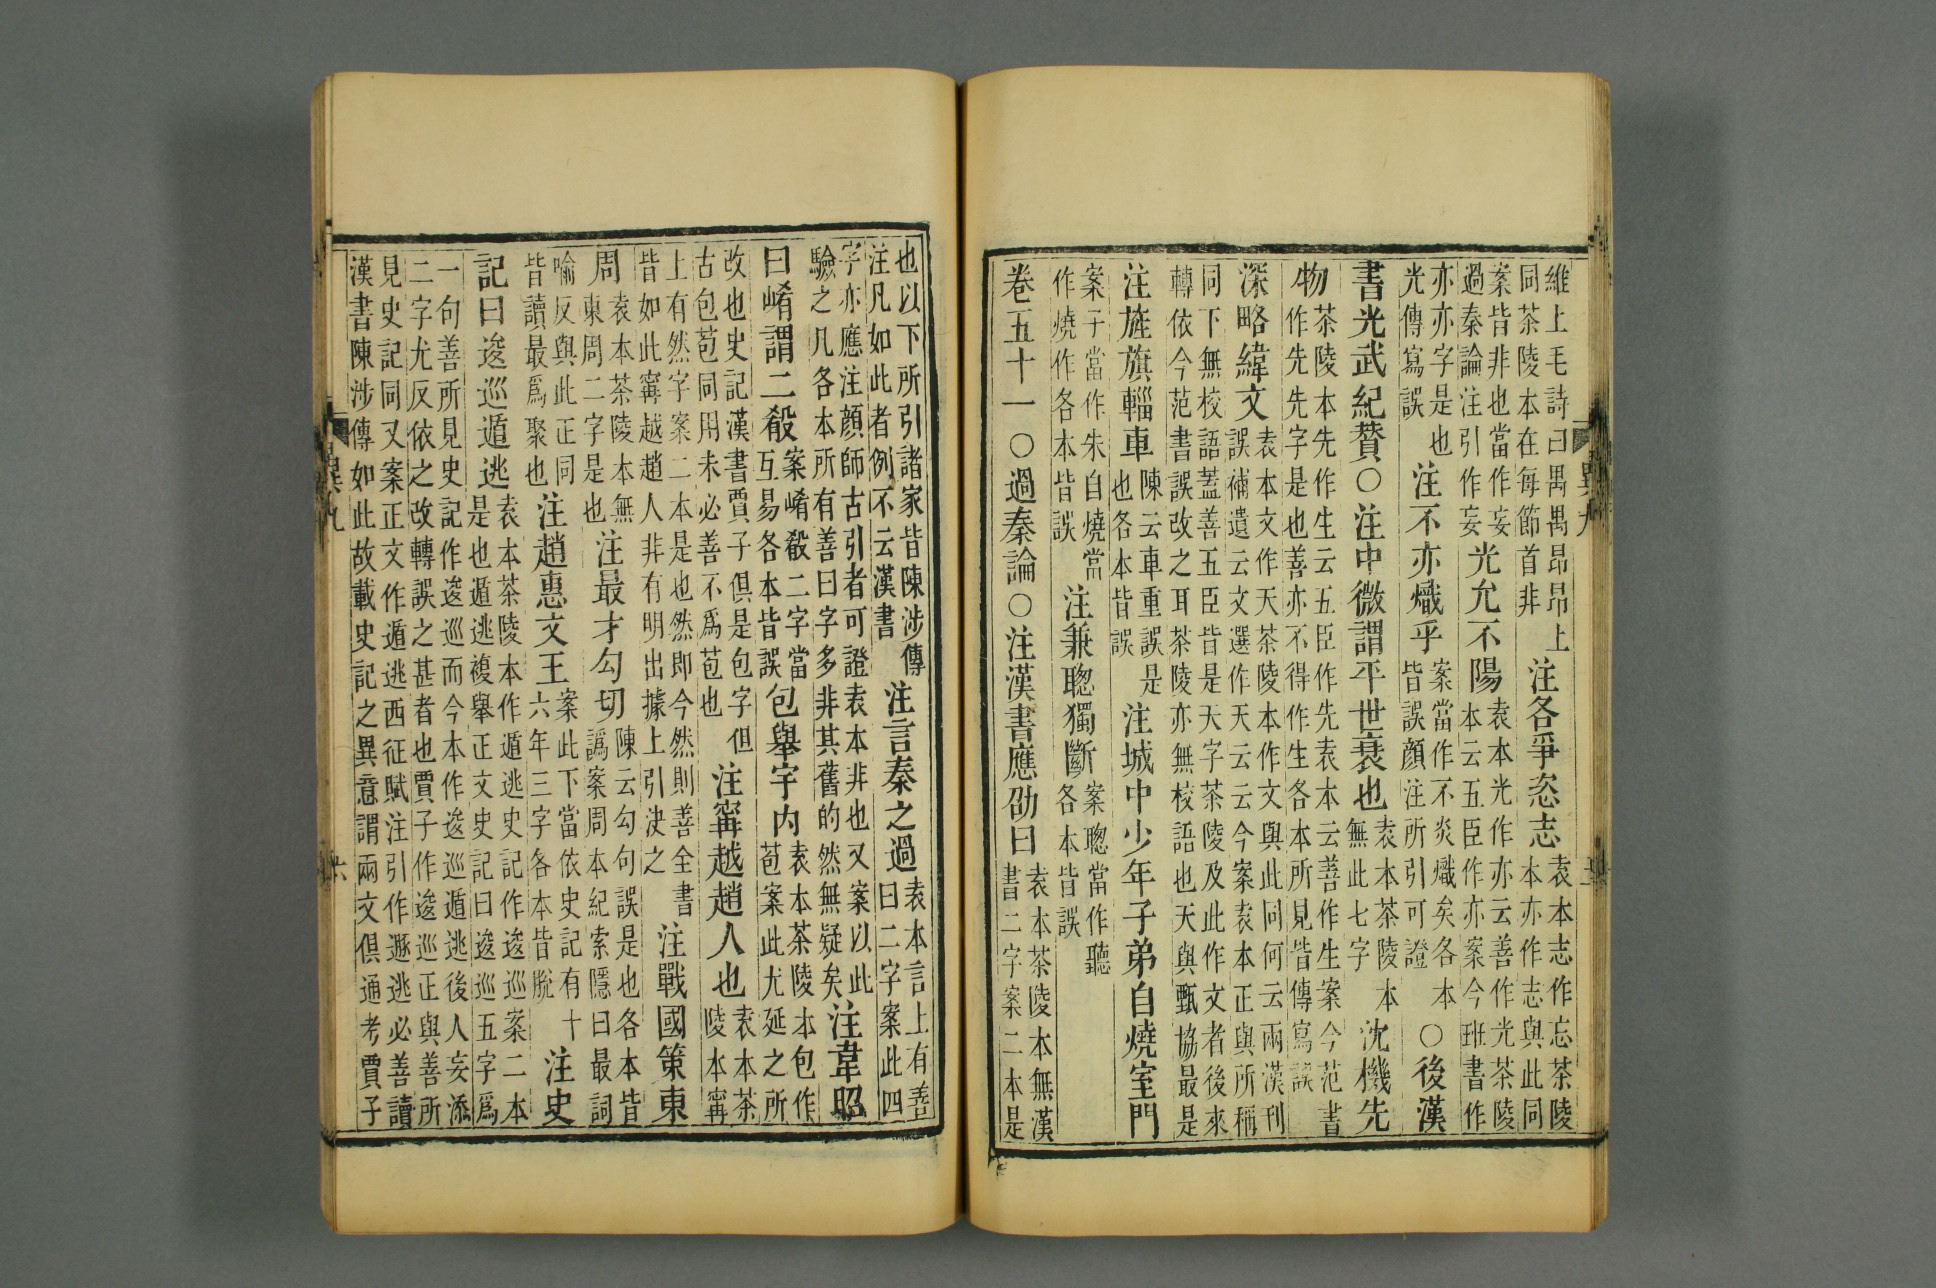 維上毛詩曰禺禺昂昂上
同茶陵本在每節首非
注各爭恣志
袁本志作忘茶陵
本亦作志與此同
案皆非也當作妄
過秦論注引作妄
光允不陽
袁本光作亦云善作光茶陵
本云五臣作亦案今班書作
亦亦字是也
光傳寫誤
注不亦熾乎
案當作不炎熾矣各本
皆誤顏注所引可證
○後漢
書光武紀贊○注中微謂平世衰也
袁本茶陵本
無此七字
沈機先
物
茶陵本先作生云五臣作先袁本云善作生案今范書
作先先字是也善亦不得作生各本所見皆傳寫誤
深略緯文
袁本文作天茶陵本作文與此同何云兩漢刊
誤補遺云文選作天云云今案袁本正與所稱
同下無校語蓋善五臣皆是天字茶陵及此作文者後來
轉依今范書誤改之耳茶陵亦無校語也天與甄協最是
注旌旗輜車
陳云車重誤是
也各本皆誤
注城中少年子弟自燒室門
案子當作朱自燒當
作燒作各本皆誤
注兼聰獨斷
案聰當作聽
各本皆誤
卷五十一○過秦論○注漢書應劭曰
袁本茶陵本無漢
書二字案二本是
異九
也以下所引諸家皆陳涉傳
注凡如此者例不云漢書
注言秦之過
袁本言上有善
曰二字案此四
字亦應注顏師古引者可證袁本非也又案以此
驗之凡各本所有善曰字多非其舊的然無疑矣
注韋昭
曰崤謂二殽
案崤殽二字當
互易各本皆誤
包舉宇内
袁本茶陵本包作
苞案此尤延之所
改也史記漢書賈子俱是包字但
古包苞同用未必善不爲苞也
注甯越趙人也
袁本茶
陵本甯
上有然字案二本是也然即今然則善全書
皆如此甯越趙人非有明出據上引决之
注戰國策東
周
袁本茶陵本無
東周二字是也
注最才勾切
陳云勾句誤是也各本皆
譌案周本紀索隱曰最詞
喻反與此正同
皆讀最爲聚也
注趙惠文王
案此下當依史記有十
六年三字各本皆脫
注史
記曰逡巡遁逃
袁本茶陵本作遁逃史記作逡巡案二本
是也遁逃複舉正文史記曰逡巡五字爲
一句善所見史記作逡巡而今本作逡巡遁逃後人妄添
二字尤反依之改轉誤之甚者也賈子作逡巡正與善所
見史記同又案正文作遁逃西征賦注引作遯逃必善讀
漢書陳涉傳如此故載史記之異意謂兩文俱通考賈子
異九
六